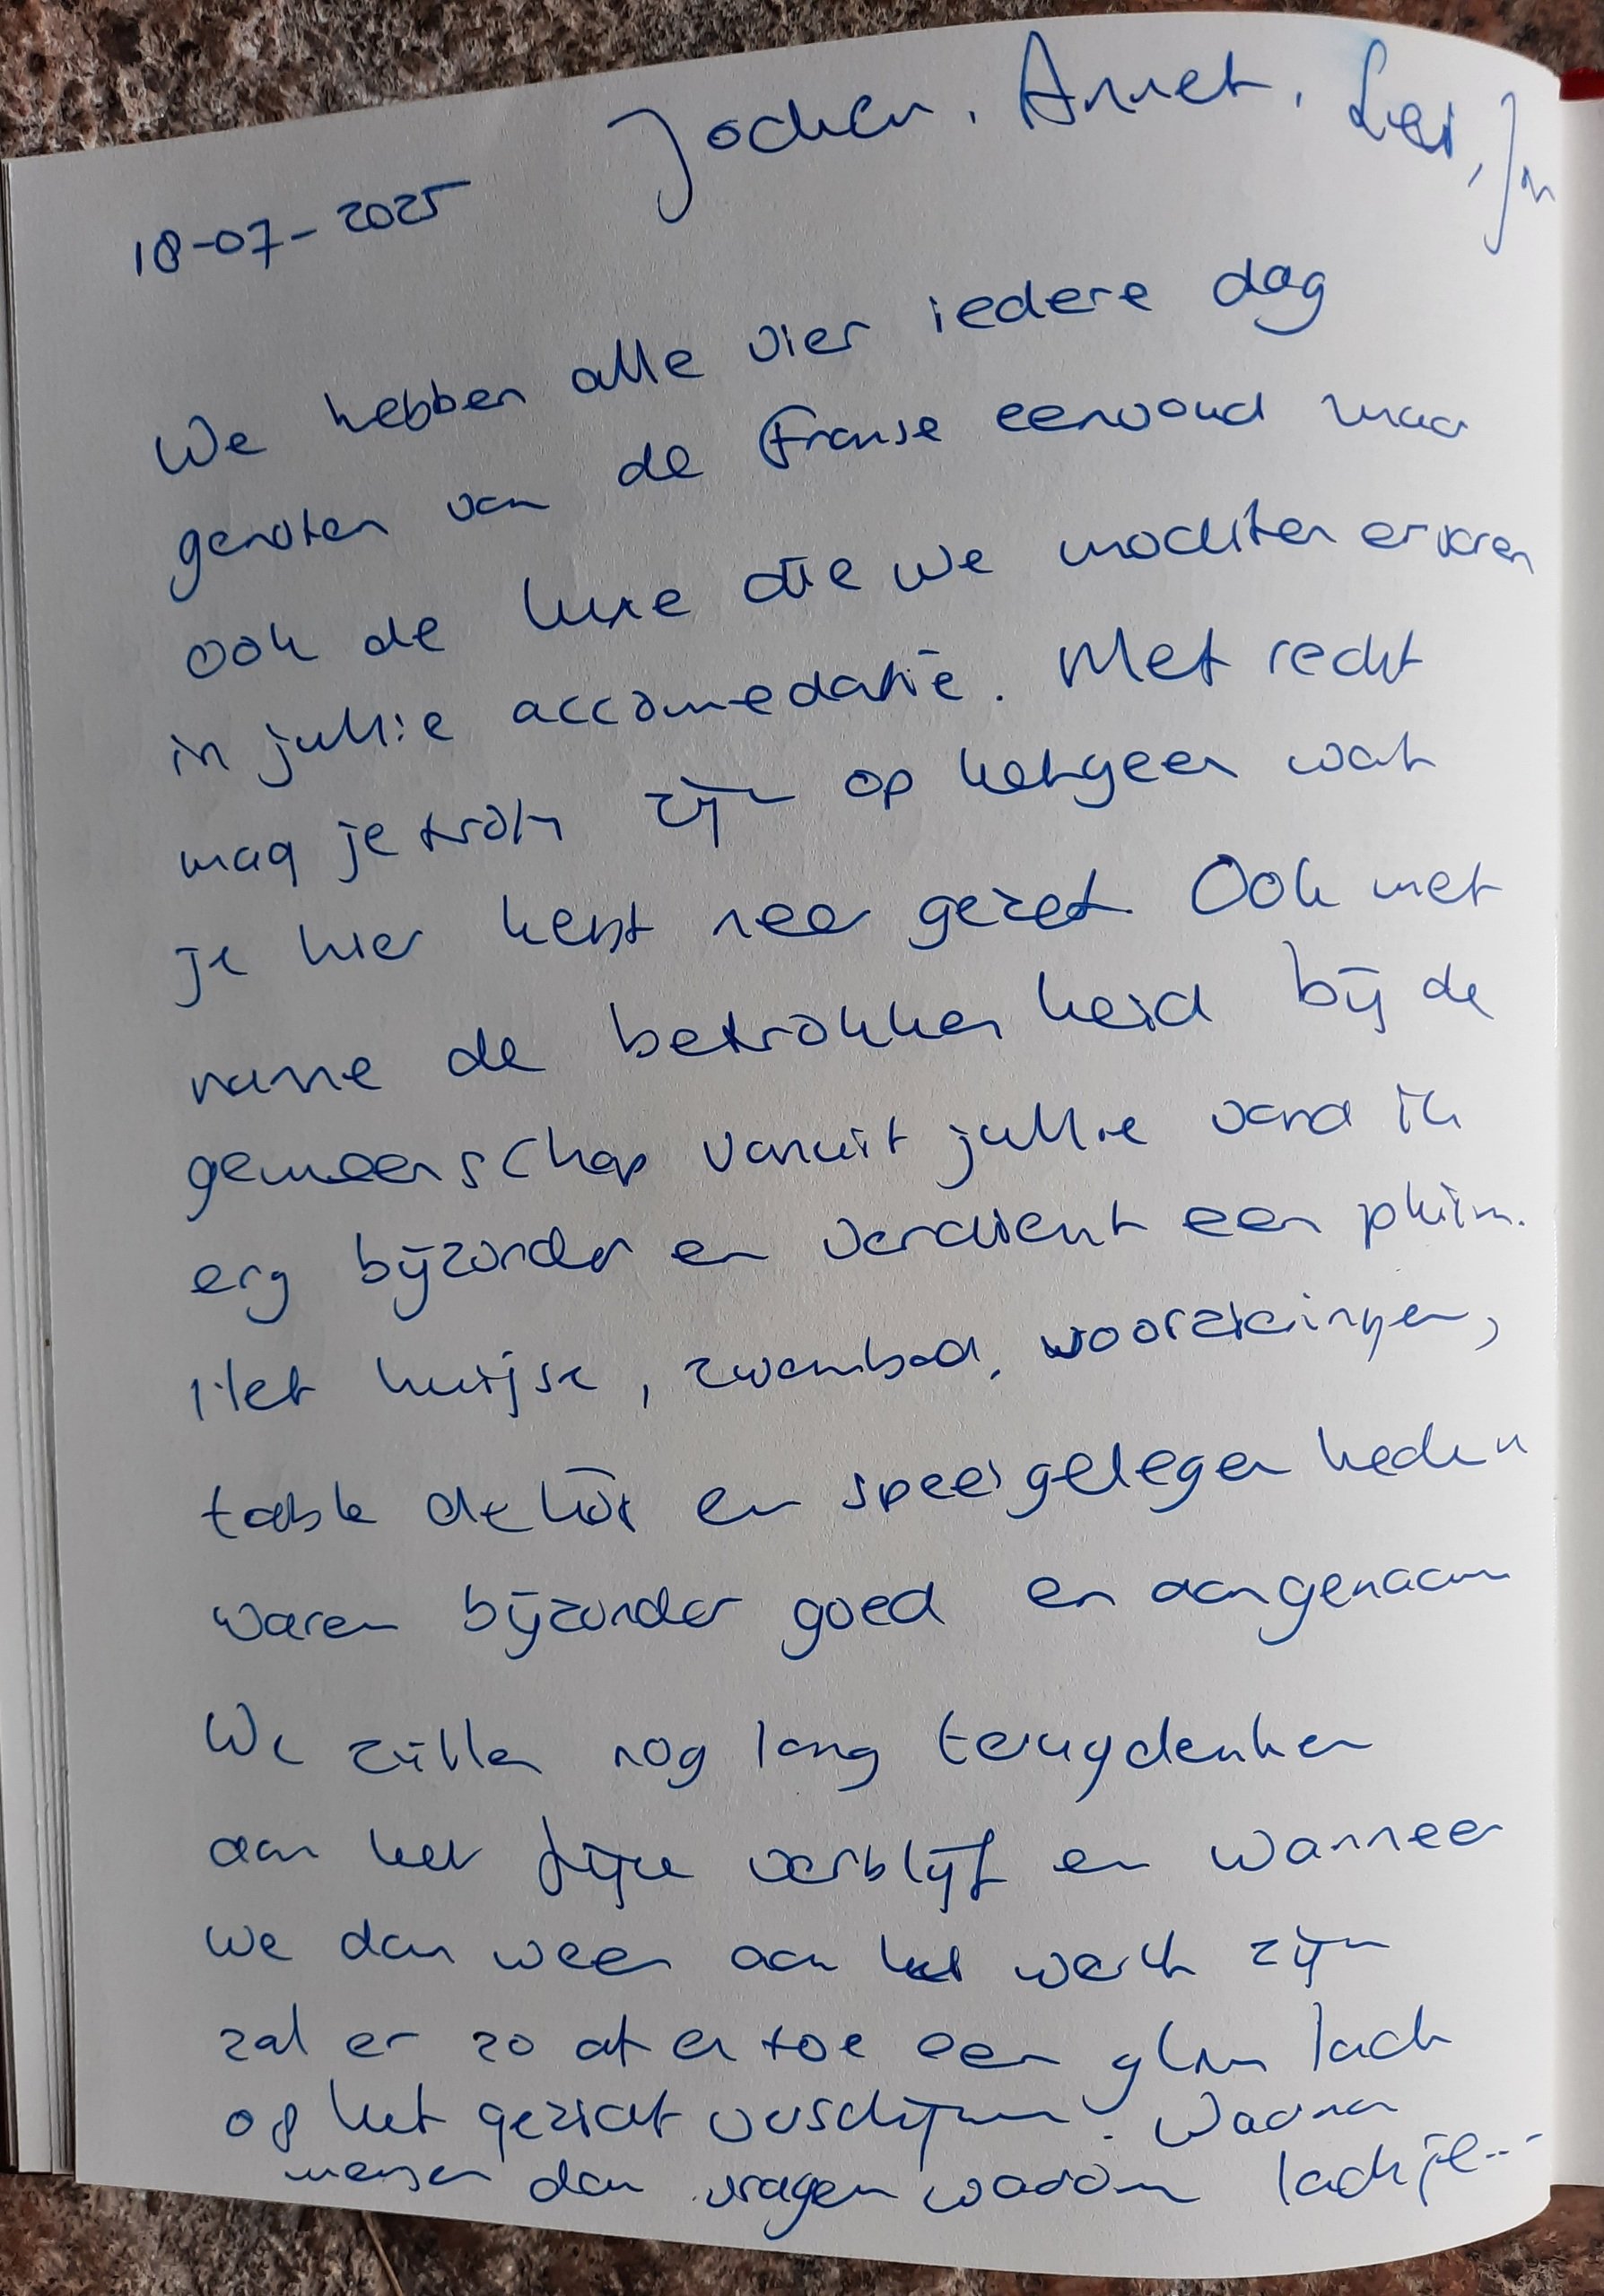 Jochen, Annet, Lei, Jn
18-07-2025
We hebben alle vier iedere dag
genoten van de Franse eenvoud maar
ook de luxe die we mochten ervaren
in jullie accomedatie. Met recht
mag je trots zijn op hetgeen wat
je hier hebt neer gezet. Ook met
name de betrokkenheid bij de
gemeenschap vanuit jullie vond ik
erg bijzonder en verdient een pluim.
Het huisje, zwembad, voorzieningen,
table de hôt en speelgelegenheden
waren bijzonder goed en aangenaam
We zullen nog lang terugdenken
aan het fijne verblijf en wanneer
we dan weer aan het werk zijn
zal er zo af en toe een glim lach
op het gezicht verschijnen. Waarna
mensen dan vragen waarom lach je...